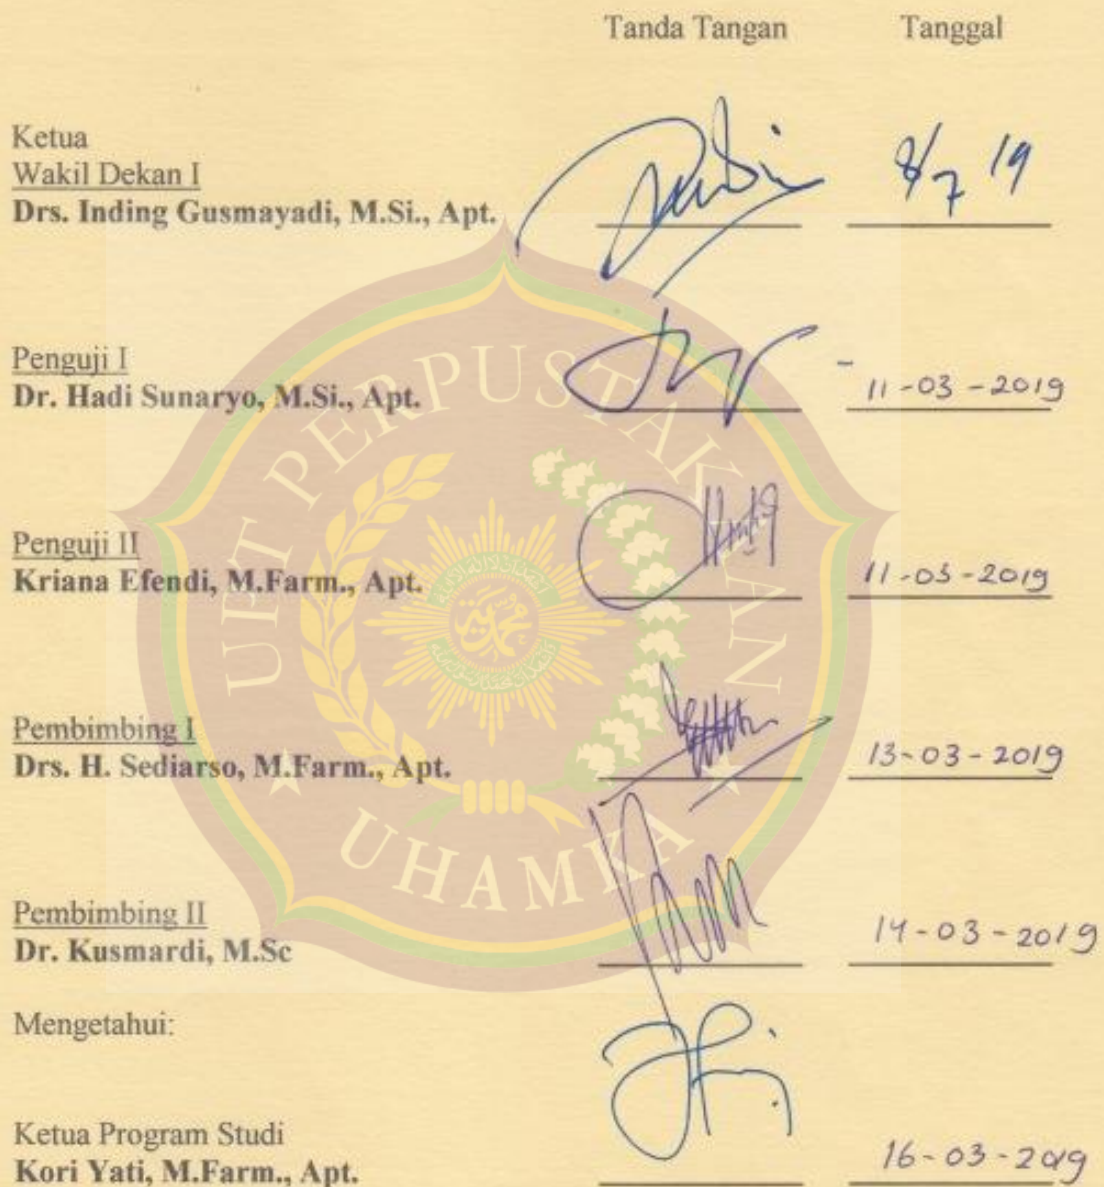 Tanda Tangan Tanggal
Ketua
Wakil Dekan I
Drs. Inding Gusmayadi, M.Si., Apt. 8/7 19
Penguji I
Dr. Hadi Sunaryo, M.Si., Apt. 11-03-2019
Penguji II
Kriana Efendi, M.Farm., Apt. 11-03-2019
Pembimbing I
Drs. H. Sediarso, M.Farm., Apt. 13-03-2019
Pembimbing II
Dr. Kusmardi, M.Sc 14-03-2019
Mengetahui:
Ketua Program Studi
Kori Yati, M.Farm., Apt. 16-03-2019
UPT PERPUSTAKAAN
UHAMKA